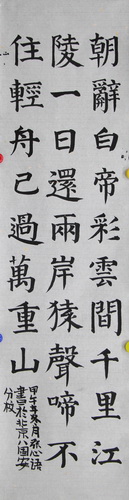 朝辭白帝彩雲間千里江
陵一日還兩岸猿聲啼不
住輕舟已過萬重山
甲午年
書於北京八
分校